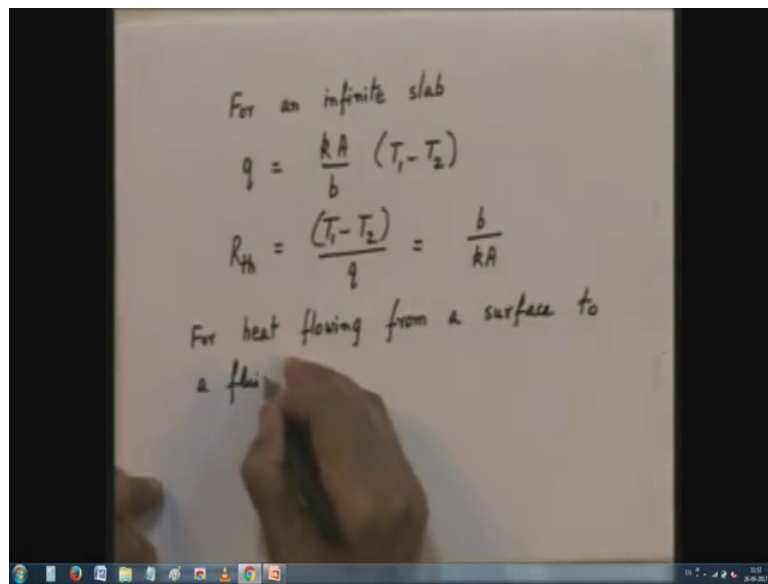 For an infinite slab
q = kA/b (T₁ - T₂)
R_th = (T₁ - T₂)/q = b/kA
For heat flowing from a surface to
a flui
EN
11:52